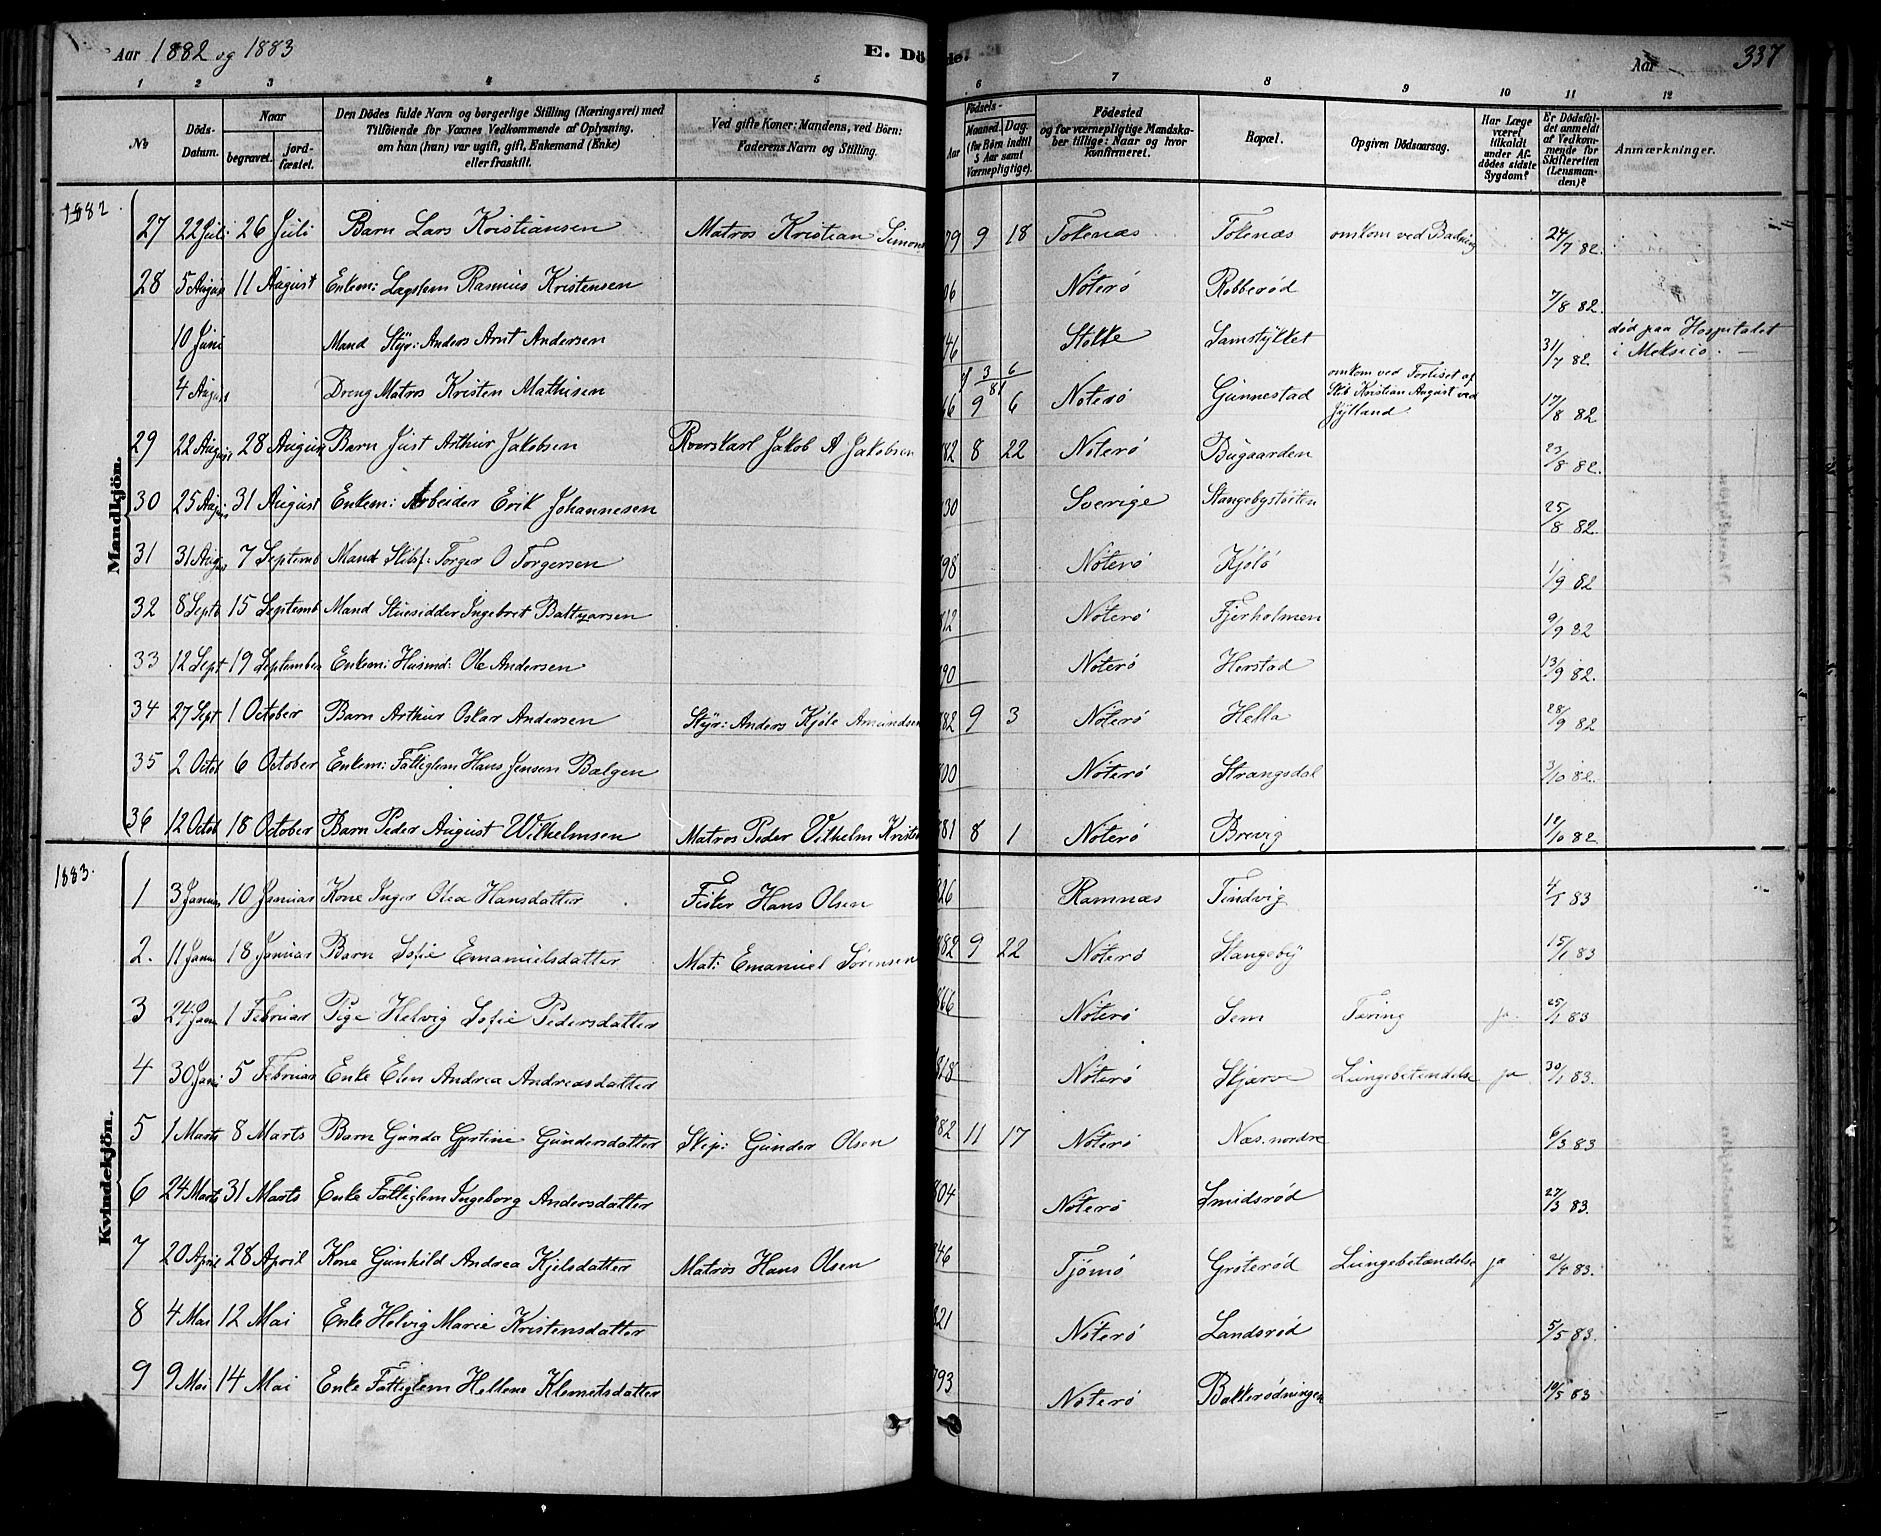 Aar 1882 og 1883 E. Döde. Aar 337
1 2 3 4 5 6 7 8 9 10 11 12
No
Döds-Datum.
Naar begravet. jordfæstet.
Den Dödes fulde Navn og borgerlige Stilling (Næringsvei) med Tilföiende for Voxnes Vedkommende af Oplysning, om han (hun) var ugift, gift, Enkemand (Enke) eller fraskilt.
Ved gifte Koner: Mandens, ved Börn: Faderens Navn og Stilling.
Födsels-
Aar Maaned. Dag.
(for Börn indtil 5 Aar samt Værnepligtige).
Födested og for værnepligtige Mandskaber tillige: Naar og hvor konfirmeret.
Bopæl.
Opgiven Dödsaarsag.
Har Læge været tilkaldt under Afdödes sidste Sygdom?
Er Dödsfaldet anmeldt af Vedkommende for Skifteretten (Lensmanden)?
Anmærkninger.
1882.
Mandkjön.
27 22 Juli 26 Juli Barn Lars Kristiansen Matros Kristian Simons 79 9 18 Tokenæs Tokenæs omkom ved Badning 24/7 82.
28 5 August 11 August Enkem: Lægslem Rasmus Kristensen 06 Nöterö Robberød 7/8 82.
10 Juni Mand Styr: Anders Arnt Andersen 46 Stokke Samstykket 31/7 82 død paa Hospitalet i Meksico.
4 August Dreng Matros Kristen Mathisen 66 9 6 3/81 6 Nöterö Gunnestad omkom ved Forliset af Skib Kristian August ved Jylland 17/8 82
29 22 August 28 August Barn Just Arthur Jakobsen Rorskarl Jakob A Jakobsen 82 8 22 Nöterö Bugaarden 23/8 82.
30 25 August 31 August Enkem: Arbeider Erik Johannesen 30 Sverige Stangebytveiten 25/8 82.
31 31 Augus 7 Septemb Mand Skibsf: Torger O Torgersen 98 Nöterö Kjölö 1/9 82
32 8 Septb 15 Septemb Mand Stuesidder Ingebret Baltzarsen 12 Nöterö Fjerholmen 9/9 82
33 12 Sept 19 September Enkem: Husmd: Ole Andersen 90 Nöterö Herstad 13/9 82.
34 27 Sept 1 October Barn Arthur Oskar Andersen Styr: Anders Kjöle Amundsen 82 9 3 Nöterö Hella 28/9 82
35 2 Octob 6 October Enkem: Fattiglem Hans Jensen Bælgen 00 Nöterö Strangsdal 3/10 82.
36 12 Octob 18 October Barn Peder August Wilhelmsen Matros Peder Vilhelm Kristi 81 8 1 Nöterö Brevig 12/10 82
1883.
Kvindekjön.
1 3 Januar 10 Januar Kone Inger Olea Hansdatter Fisker Hans Olsen 26 Ramnæs Tindvig 4/1 83
2. 11 Janu 18 Januar Barn Sofie Emanuelsdatter Mat: Emanuel Sörensen 82 9 22 Nöterö Stangeby 15/1 83
3 24 Janu 1 Februar Pige Helvig Sofie Pedersdatter 66 Nöterö Sem Tæring ja. 25/1 83
4 30 Janu 5 Februar Enke Elen Andrea Andreasdatter 818 Nöterö Skjærve Lungebetændelse ja 30/1 83.
5 1 Marts 8 Marts Barn Gunda Gjertine Gundersdatter Skip: Gunder Olsen 82 11 17 Nöterö Næs. nordre 6/3 83
6 24 Marts 31 Marts Enke Fattiglem Ingeborg Andersdatter 804 Nöterö Smidsrød 27/3 83.
7 20 April 28 April Kone Gunhild Andrea Kjelsdatter Matros Hans Olsen 46 Tjömö Gröterød Lungebetændelse ja 21/4 83.
8 4 Mai 12 Mai Enke Helvig Marie Kristensdatter 821 Nöterö Landsrød 5/5 83.
9 9 Mai 14 Mai Enke Fattiglem Hellene Klemetsdatter 793 Nöterö Bakkerødningen 10/5 83